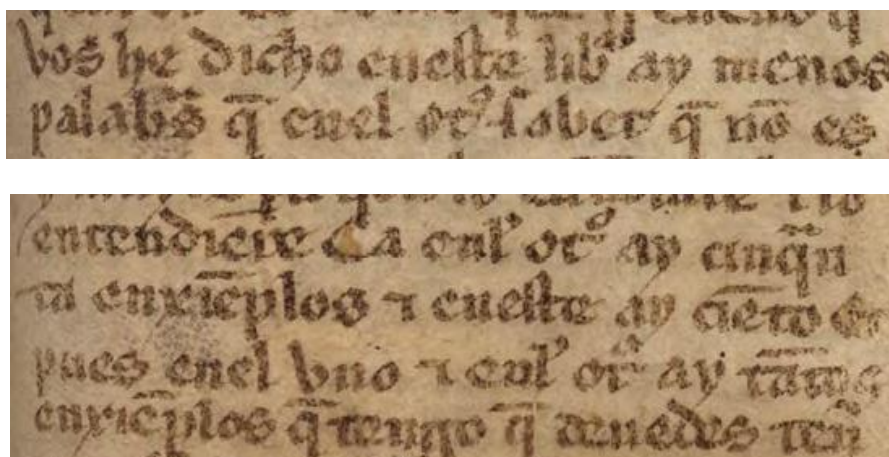 vos he dicho eneste libᵒ ay menos
palabᵃs q̄ enel otᵒ sabet q̄ nō es
entendiere Ca enlᵒ otᵒ ay cinqᵃn
ta enxiēplos ⁊ eneste ay ciēto
pues enel vno ⁊ enlᵒ otᵒ ay tātos
enxiēplos q̄ tengo q̄ deuedes